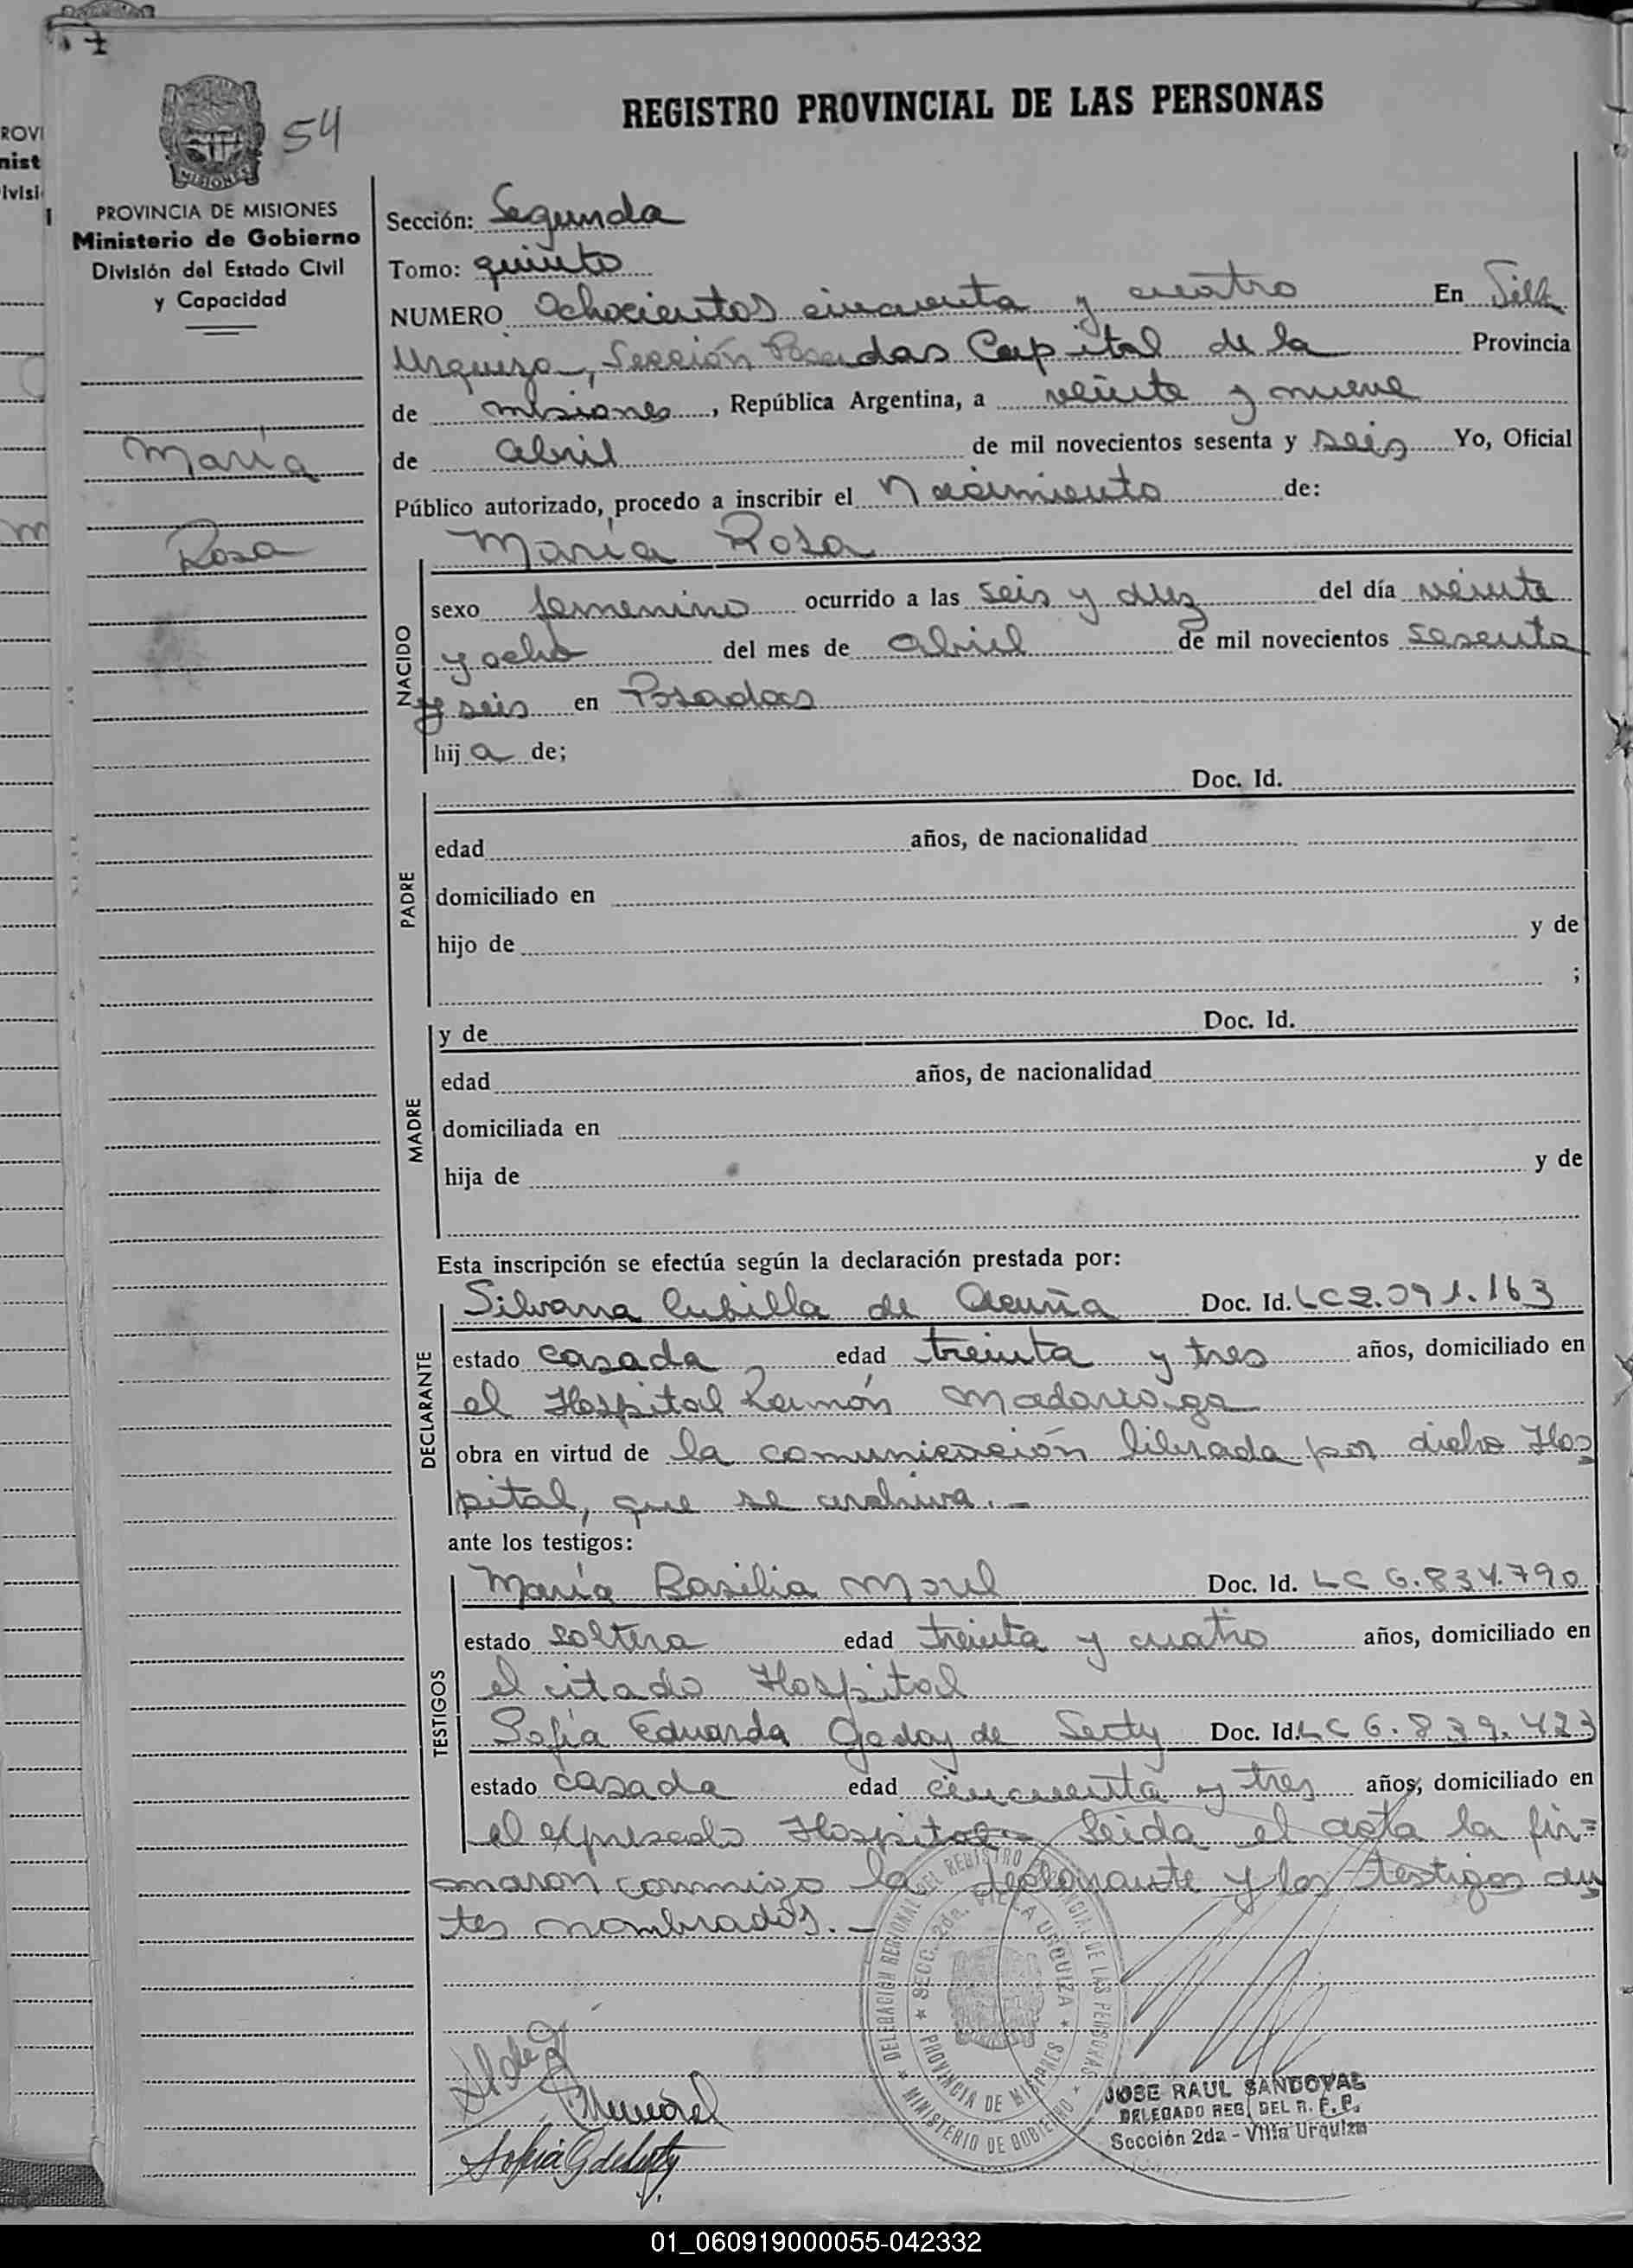 REGISTRO PROVINCIAL DE LAS PERSONAS
54
MISIONES
PROVINCIA DE MISIONES
Ministerio de Gobierno
División del Estado Civil
y Capacidad
María
Rosa
Sección: Segunda
Tomo: quinto
NUMERO Ochocientos cincuenta y cuatro En Villa
Urquiza, Sección Posadas Capital de la Provincia
de misiones, República Argentina, a veinte y nueve
de abril de mil novecientos sesenta y seis Yo, Oficial
Público autorizado, procedo a inscribir el Nacimiento de:
María Rosa
NACIDO
sexo femenino ocurrido a las seis y diez del día veinte
y ocho del mes de abril de mil novecientos sesenta
y seis en Posadas
hija de;
PADRE
Doc. Id.
edad años, de nacionalidad
domiciliado en
hijo de y de
;
MADRE
y de Doc. Id.
edad años, de nacionalidad
domiciliada en
hija de y de
Esta inscripción se efectúa según la declaración prestada por:
DECLARANTE
Silvana Cubilla de Acuña Doc. Id. LC 2.091.163
estado casada, edad treinta y tres años, domiciliado en
el Hospital Ramón Madariaga
obra en virtud de la comunicación librada por dicho Hos
pital, que se archiva.-
ante los testigos:
TESTIGOS
María Basilia Doc. Id. LC 6.834.790
estado soltera edad treinta y cuatro años, domiciliado en
el citado Hospital
Sofía Eduarda Godoy de Doc. Id. LC 6.839.423
estado casada edad cincuenta y tres años, domiciliado en
el expresado Hospital. Leida el acta la fir=
maron conmigo la declarante y los testigos an
tes nombrados.-
DELEGACIÓN REGIONAL DEL REGISTRO PROVINCIAL DE LAS PERSONAS
SECC. 2da. VILLA URQUIZA
PROVINCIA DE MISIONES
MINISTERIO DE GOBIERNO
JOSE RAUL SANDOVAL
DELEGADO REG. DEL R. P. P.
Sección 2da - Villa Urquiza
01_060919000055-042332